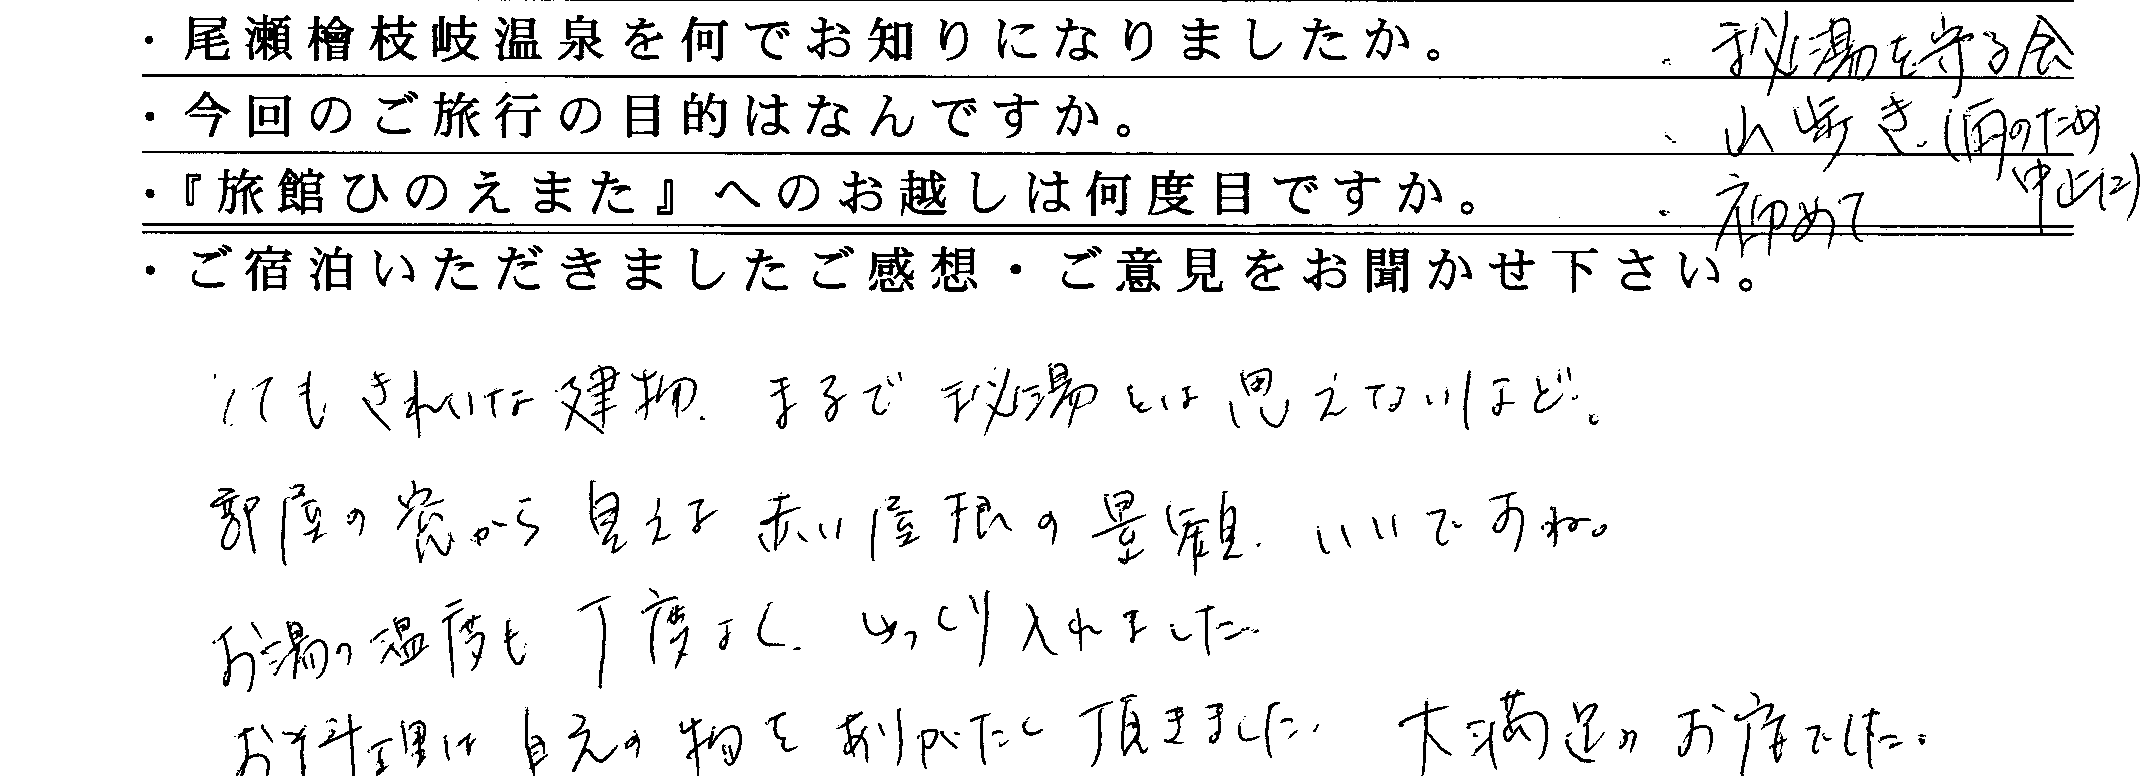 ・尾瀬檜枝岐温泉を何でお知りになりましたか。 ・秘湯を守る会
・今回のご旅行の目的はなんですか。 ・山歩き(雨のため中止に)
・『旅館ひのえまた』へのお越しは何度目ですか。 ・初めて
・ご宿泊いただきましたご感想・ご意見をお聞かせ下さい。
とてもきれいな建物、まるで秘湯とは思えないほど。
部屋の窓から見える赤い屋根の景観、いいですね。
お湯の温度も丁度よく、ゆっくり入れました。
お料理は地元の物をありがたく頂きました。大満足のお宿でした。